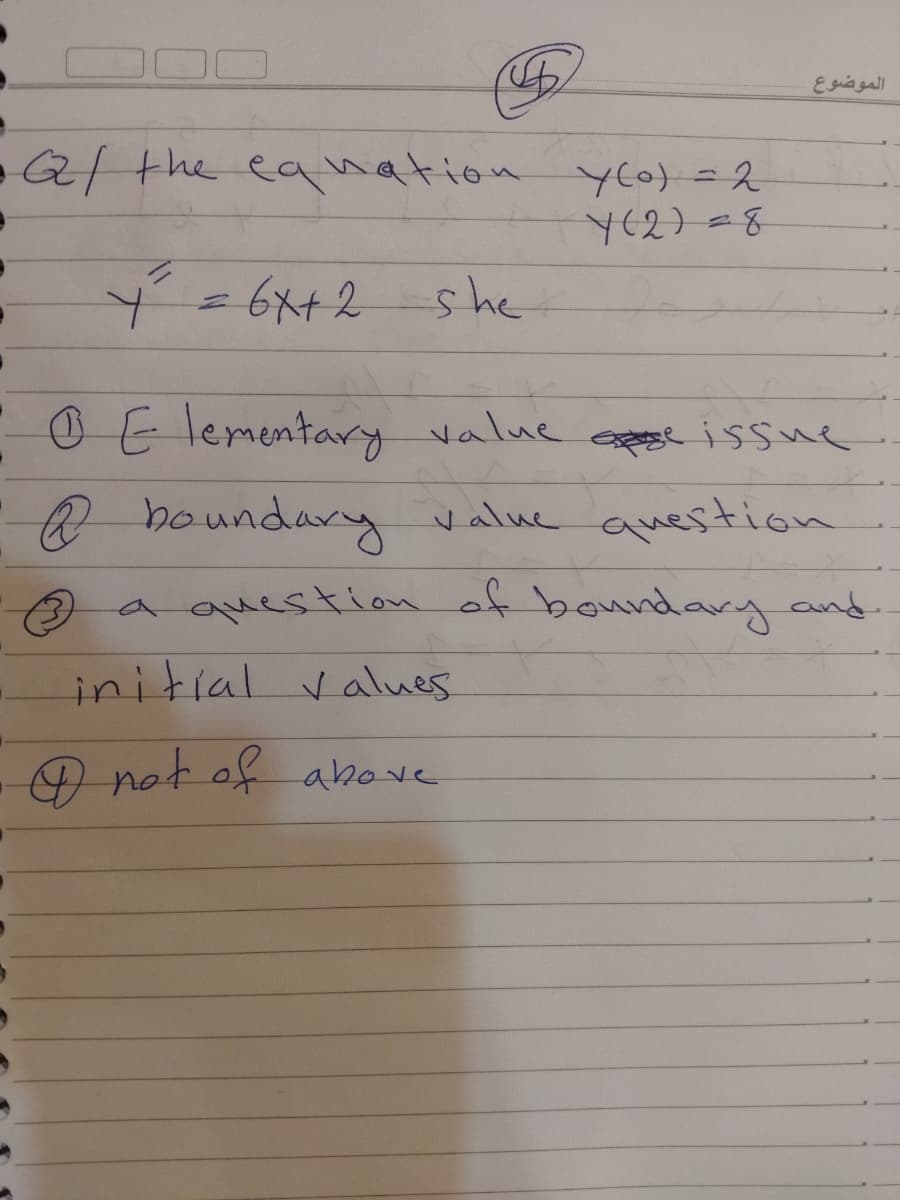 الموضوع
Q/ the equation y(0) = 2
y(2) = 8
y'' = 6x+2 she
① Elementary value issue
② boundary value question
③ a question of boundary and
initial values
④ not of above